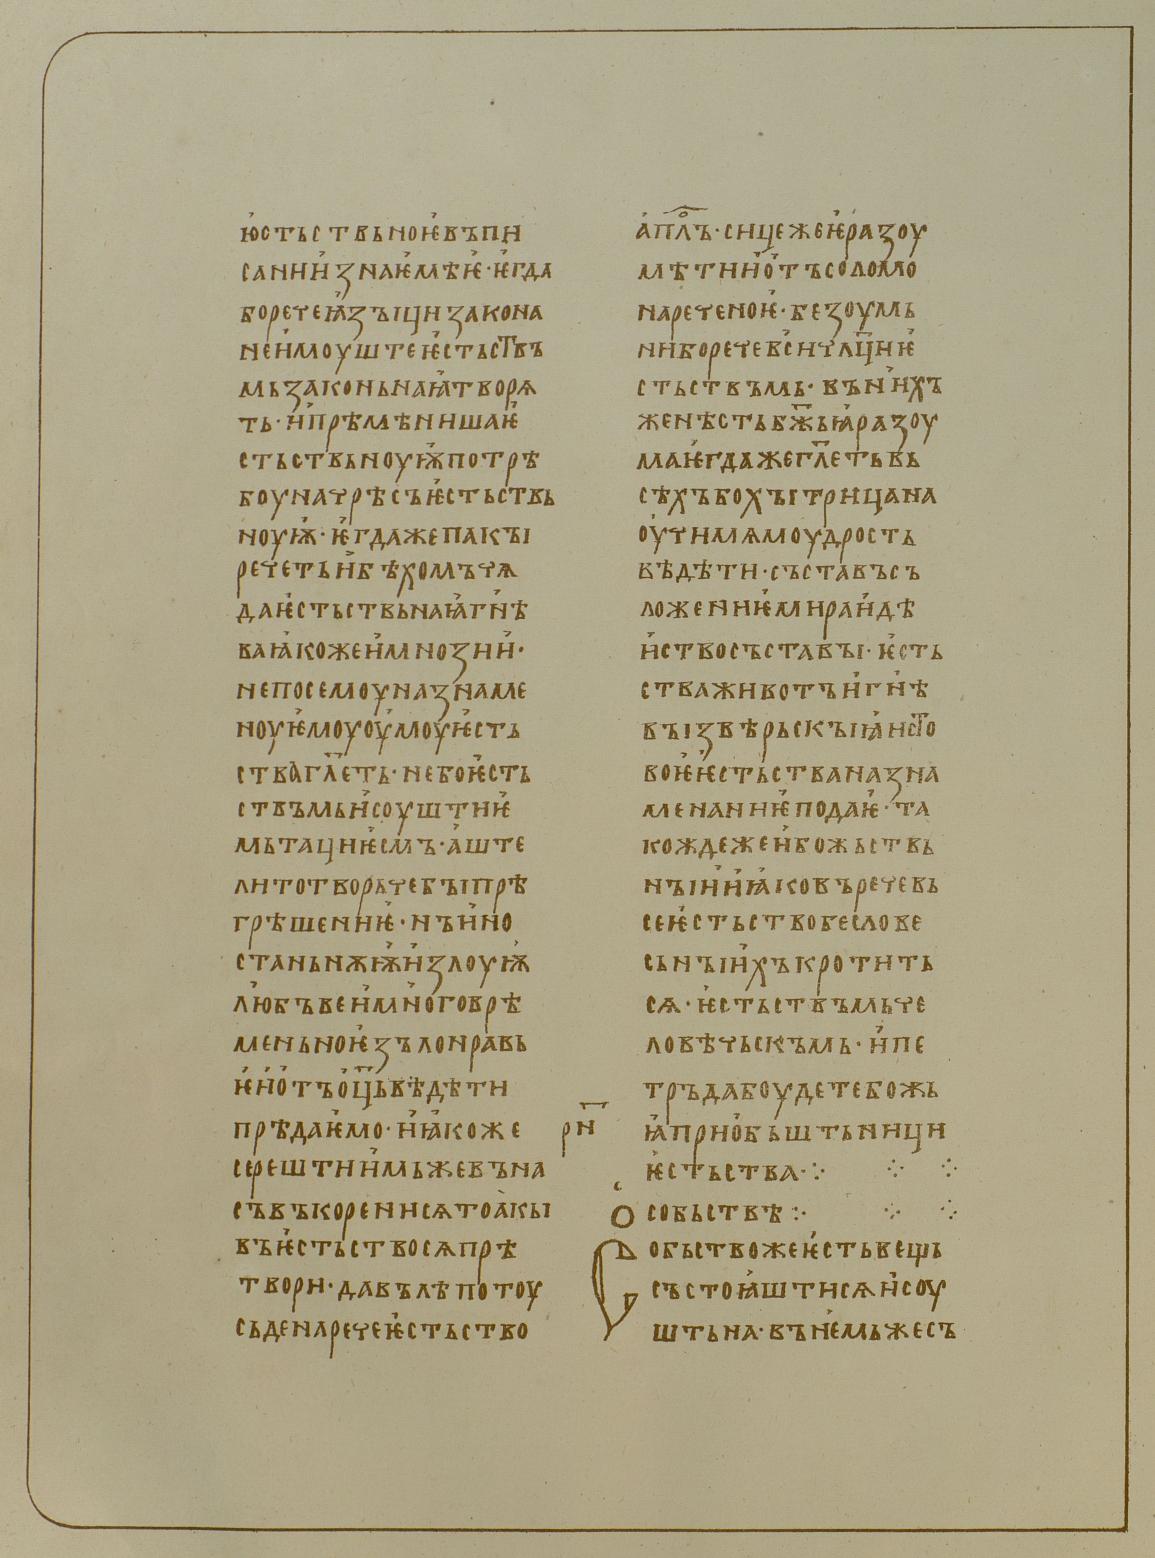 ѥстьствьноѥвъпи
саниизнаѥмѣѥ·ѥгда
боречеꙗзъіцизакона
неимоуштеѥстьствъ
мьзаконьнаꙗтворѧ
ть·ипрѣмѣнишаѥ
стьствьноуѭпотрѣ
боуначрѣсъѥстьствь
ноуѭ·ѥгдажепакъі
речетьибѣхомъчѧ
даѥстьствьнаꙗгнѣ
ваꙗкожеимнозии·
непосемоуназнаме
ноуѥмоуоумоуѥсть
ствагл҃еть·небоѥсть
ствъмьисоуштииѥ
мьтациѥсмъ·аште
литотворьчебъіпрѣ
грѣшениѥ·нъино
станьнѫѭизлоуѭ
любъвеимноговрѣ
меньноѥзълонравь
ѥиотъоц҃ьвѣдѣти
прѣдаѥмо·иꙗкоже
серештиимьжевъна
съвъкоренисѧтоакы
въѥстьствосѧпрѣ
твори·давълѣпотоу
сьденаречеѥстьство
апл҃ъ·сицежеѥразоу
мѣтииотъсоломо
наречсноѥ·безоумь
ниборечевсичл҃циѥ
стьствъмь·вънихъ
женѣстьбж҃ьꙗразоу
маѥгдажегл҃етьвь
сѣхъбохъітрицана
оучимѧмоудрость
вѣдѣти·съставъсъ
ложениѥмираидѣ
иствосъставъі·ѥсть
стважиботъигнѣ
въізвѣрьскъіꙗисто
воѥѥстьствиназна
менаниѥподаѥ·та
кождежеибожьствь
нъіииꙗковъречевь
сеѥстьствобеслове
сьнъіихъкротить
сѧ·ѥстьствъмьче
ловѣчьскъмь·ипе
тръдабоудетебожь
рн҃
ꙗприобьштьници
ѥстьства·:·
о собьствѣ:·
Собьствожеѥстьвешь
състоꙗштисѧисоу
штьна·въиемьжесъ